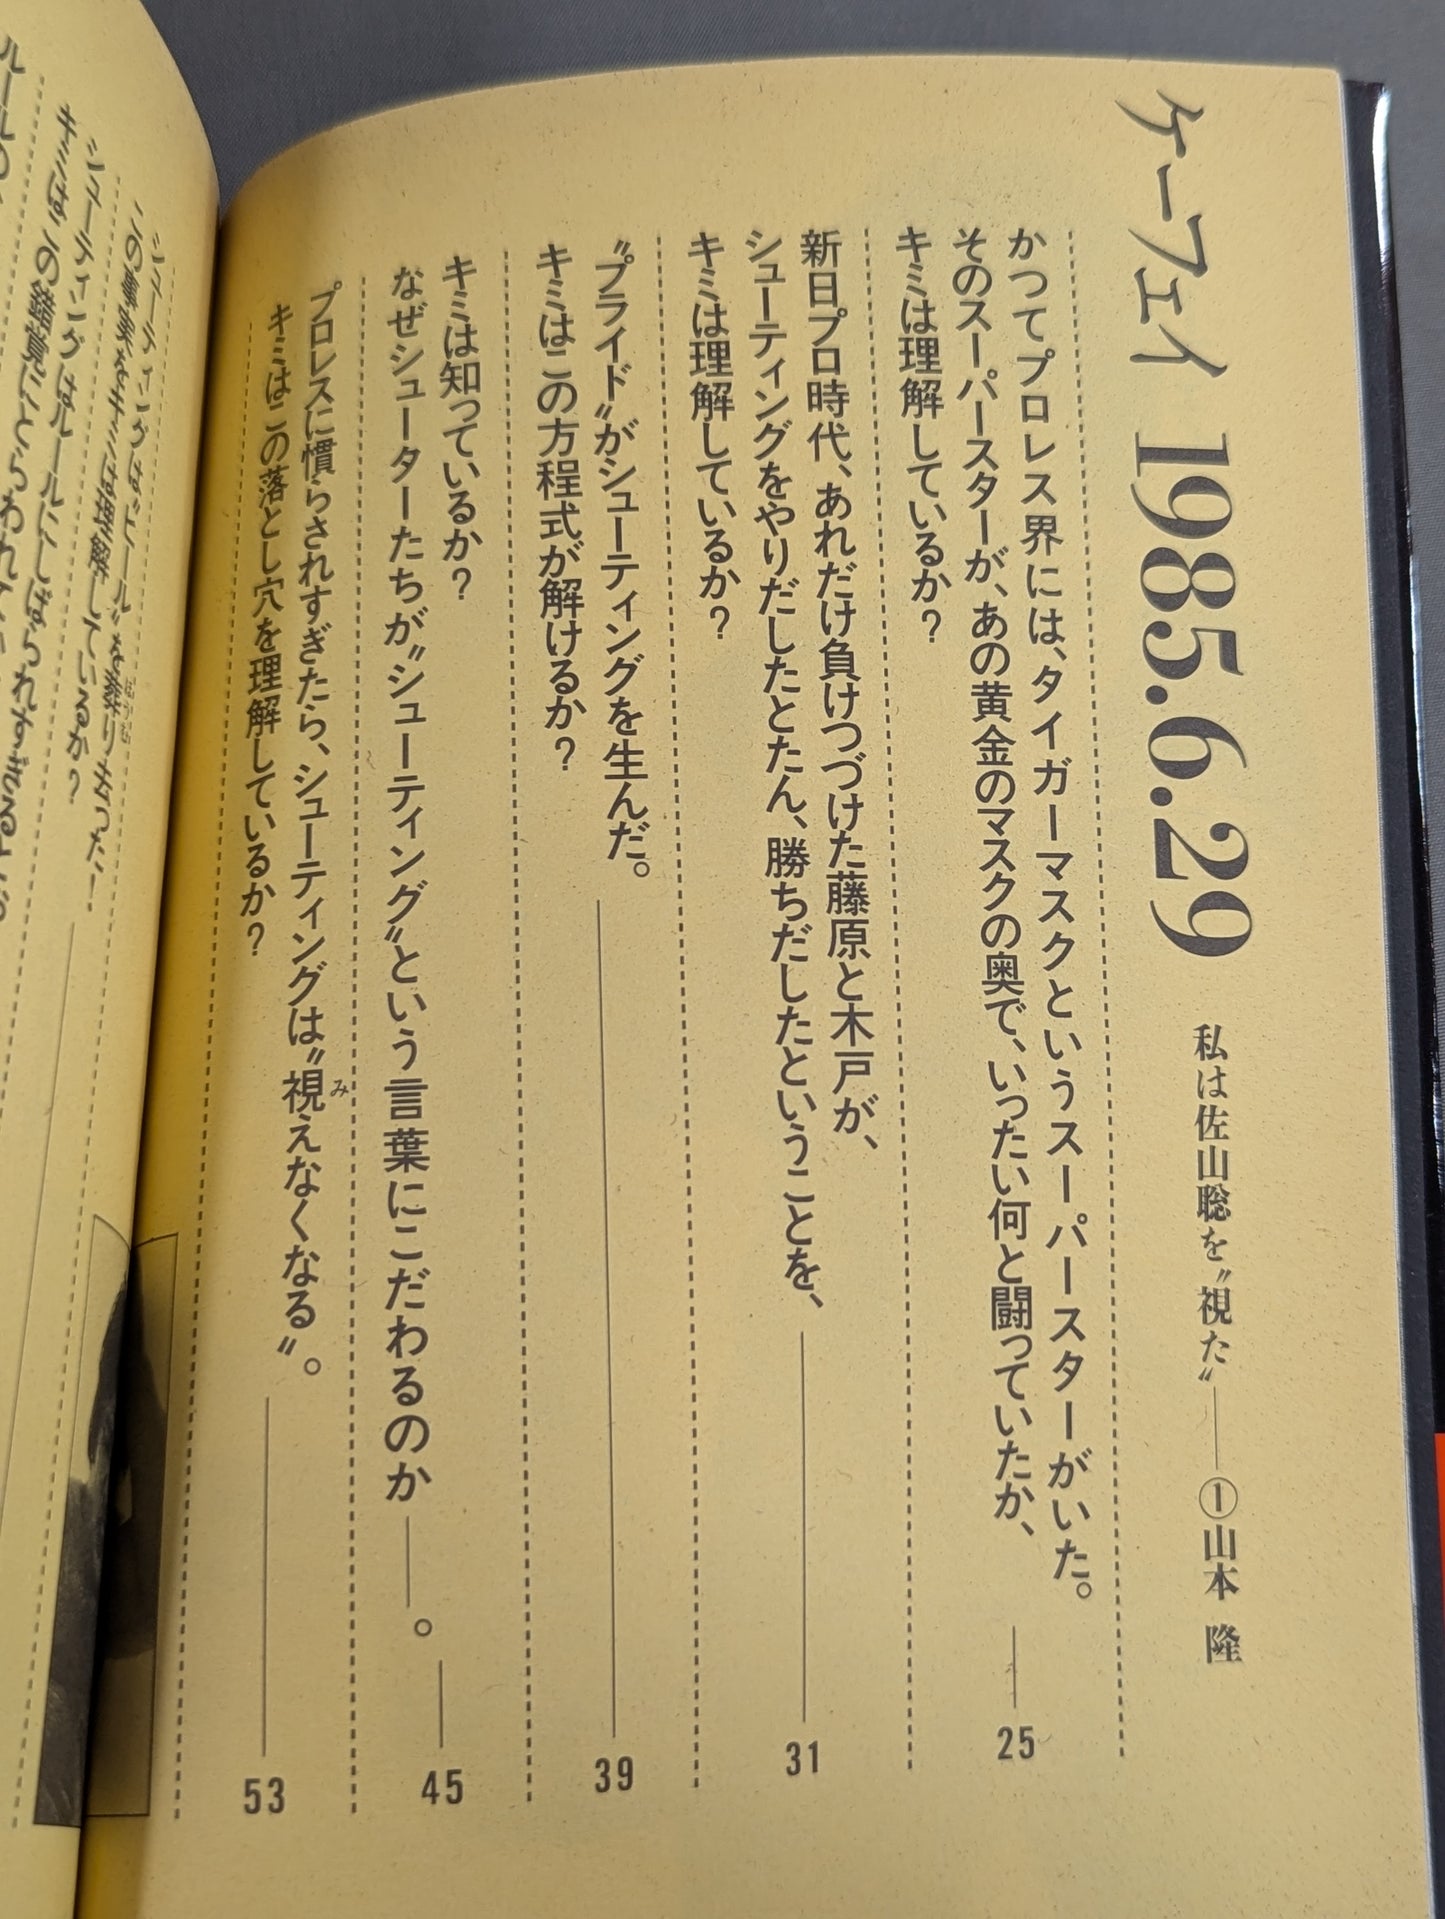 ケーフェイ 1985.6.29
私は佐山聡を〝視た〟――①山本 隆
かつてプロレス界には、タイガーマスクというスーパースターがいた。
そのスーパースターが、あの黄金のマスクの奥で、いったい何と闘っていたか、
キミは理解しているか？
25
新日プロ時代、あれだけ負けつづけた藤原と木戸が、
シューティングをやりだしたとたん、勝ちだしたということを、
キミは理解しているか？
31
〝プライド〟がシューティングを生んだ。
キミはこの方程式が解けるか？
39
キミは知っているか？
なぜシューターたちが〝シューティング〟という言葉にこだわるのか――。
45
プロレスに慣らされすぎたら、シューティングは〝視えなくなる〟。
み
キミはこの落とし穴を理解しているか？
53
シューティングは〝ヒール〟を葬り去った！
ほうむ
この事実をキミは理解しているか？
シューティングはルールにしばられすぎる
キミはこの錯覚にとらわれてい